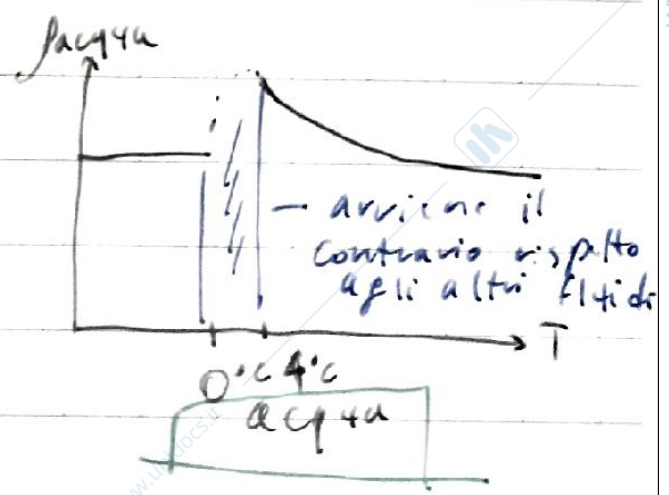 ρacqua
— avviene il
contrario rispetto
agli altri fluidi
T
0°C 4°C
acqua
www.unidocs.it